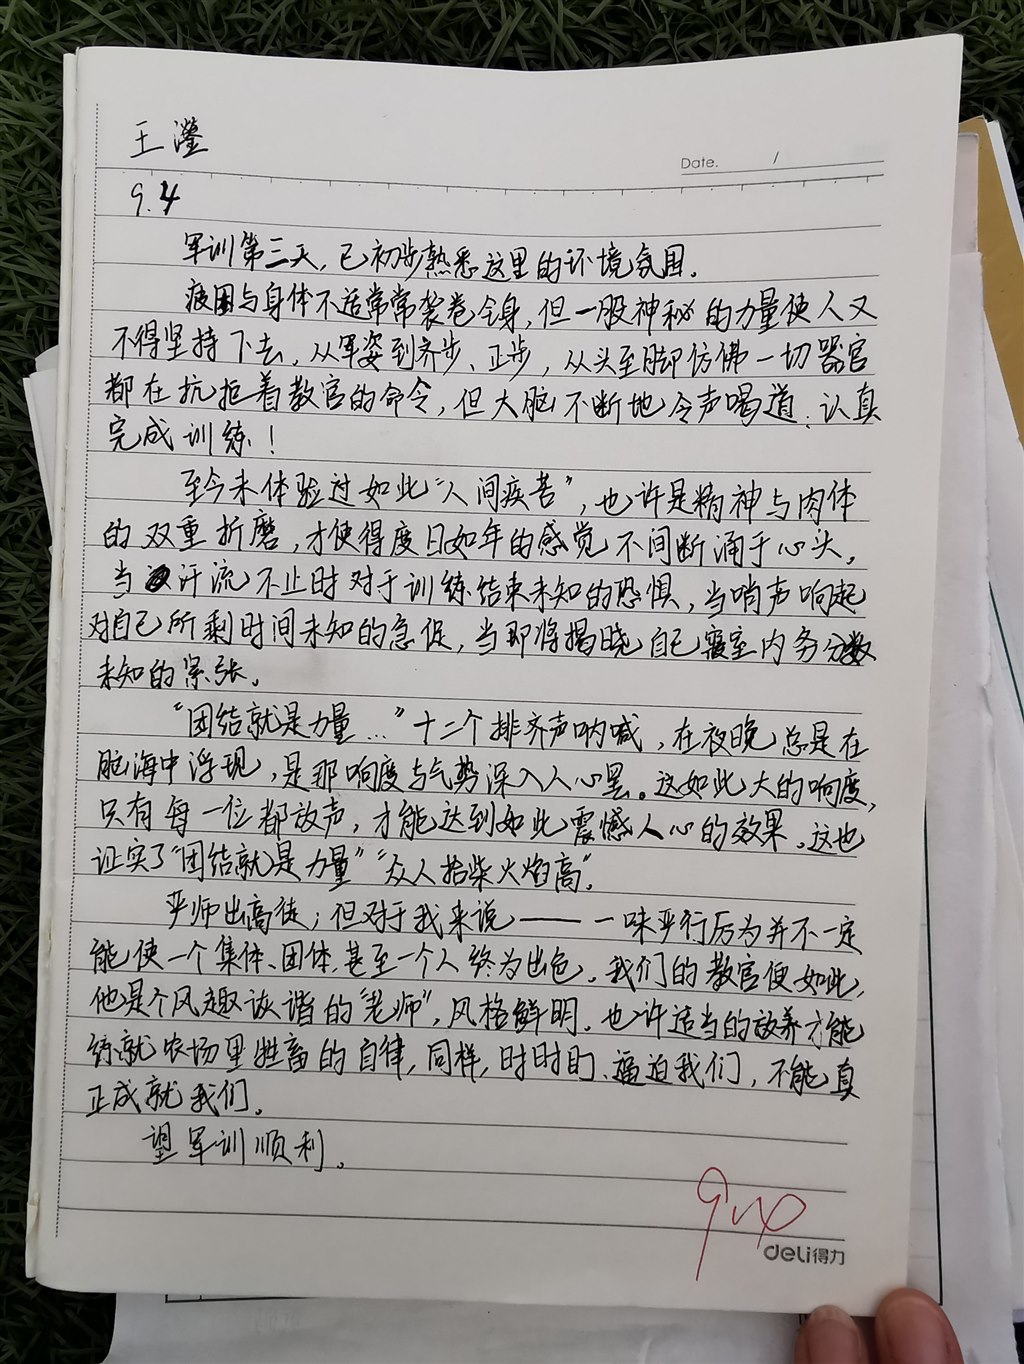 王滢
Date. /
9.4
军训第三天,已初步熟悉这里的环境氛围.
疲困与身体不适常常袭卷全身,但一股神秘的力量使人又
不得坚持下去,从军姿到齐步、正步,从头至脚仿佛一切器官
都在抗拒着教官的命令,但大脑不断地令声喝道:认真
完成训练!
至今未体验过如此“人间疾苦”,也许是精神与肉体
的双重折磨,才使得度日如年的感觉不间断涌于心头。
当汗流不止时对于训练结束未知的恐惧,当哨声响起
对自己所剩时间未知的急促,当即将揭晓自己寝室内务分数
未知的紧张。
“团结就是力量...”十二个排齐声呐喊,在夜晚总是在
脑海中浮现,是那响度与气势深入人心里。这如此大的响度,
只有每一位都放声,才能达到如此震憾人心的效果。这也
证实了“团结就是力量”“众人拾柴火焰高”。
严师出高徒;但对于我来说——一味严行厉为并不一定
能使一个集体、团体,甚至一个人终为出色。我们的教官便如此,
他是个风趣诙谐的“老师”,风格鲜明.也许适当的放养才能
练就农场里牲畜的自律,同样,时时时逼迫我们,不能真
正成就我们。
望军训顺利。
deli得力